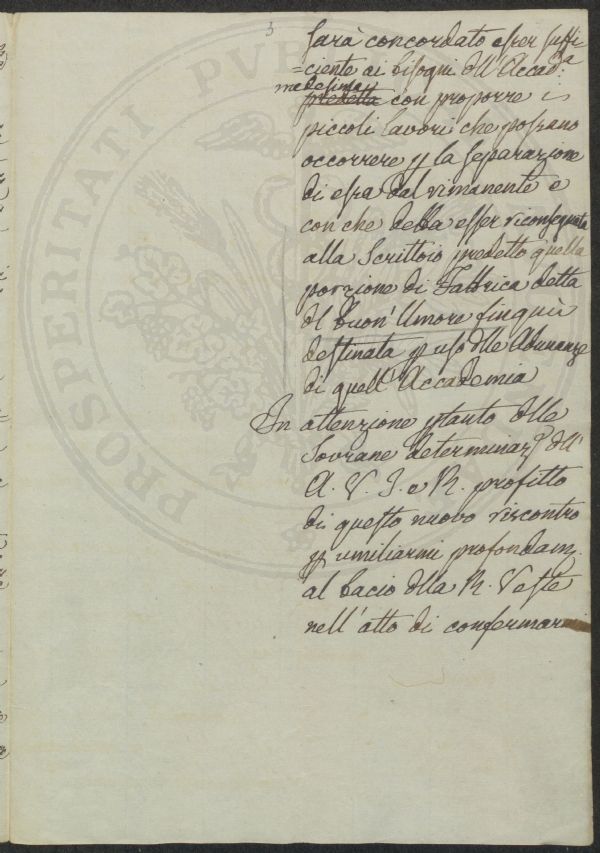 3
sarà concordato esser suffi
=ciente ai bisogni dell'Accad:a
medesima
predetta con proporre i
piccoli lavori che possano
occorrere p la separazione
di essa dal rimanente e
con che debba esser riconsegnata
alla Scrittoio predetto quella
porzione di Fabbrica detta
del buon'Umore finquì
destinata p uso delle Adunanze
di quell'Accademia
In attenzione ptanto delle
Sovrane determinaz.i dell'
A. V. I. e R. profitto
di questo nuovo riscontro
p umiliarmi profondam.
al bacio della R. Veste
nell'atto di confermarmi
PROSPERITATI PVB